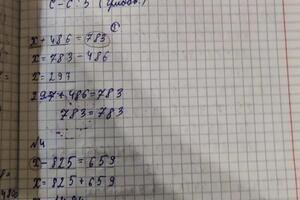 x + 486 = 783
x = 783 - 486
x = 297
297 + 486 = 783
783 = 783
№4
x - 825 = 659
x = 825 + 659